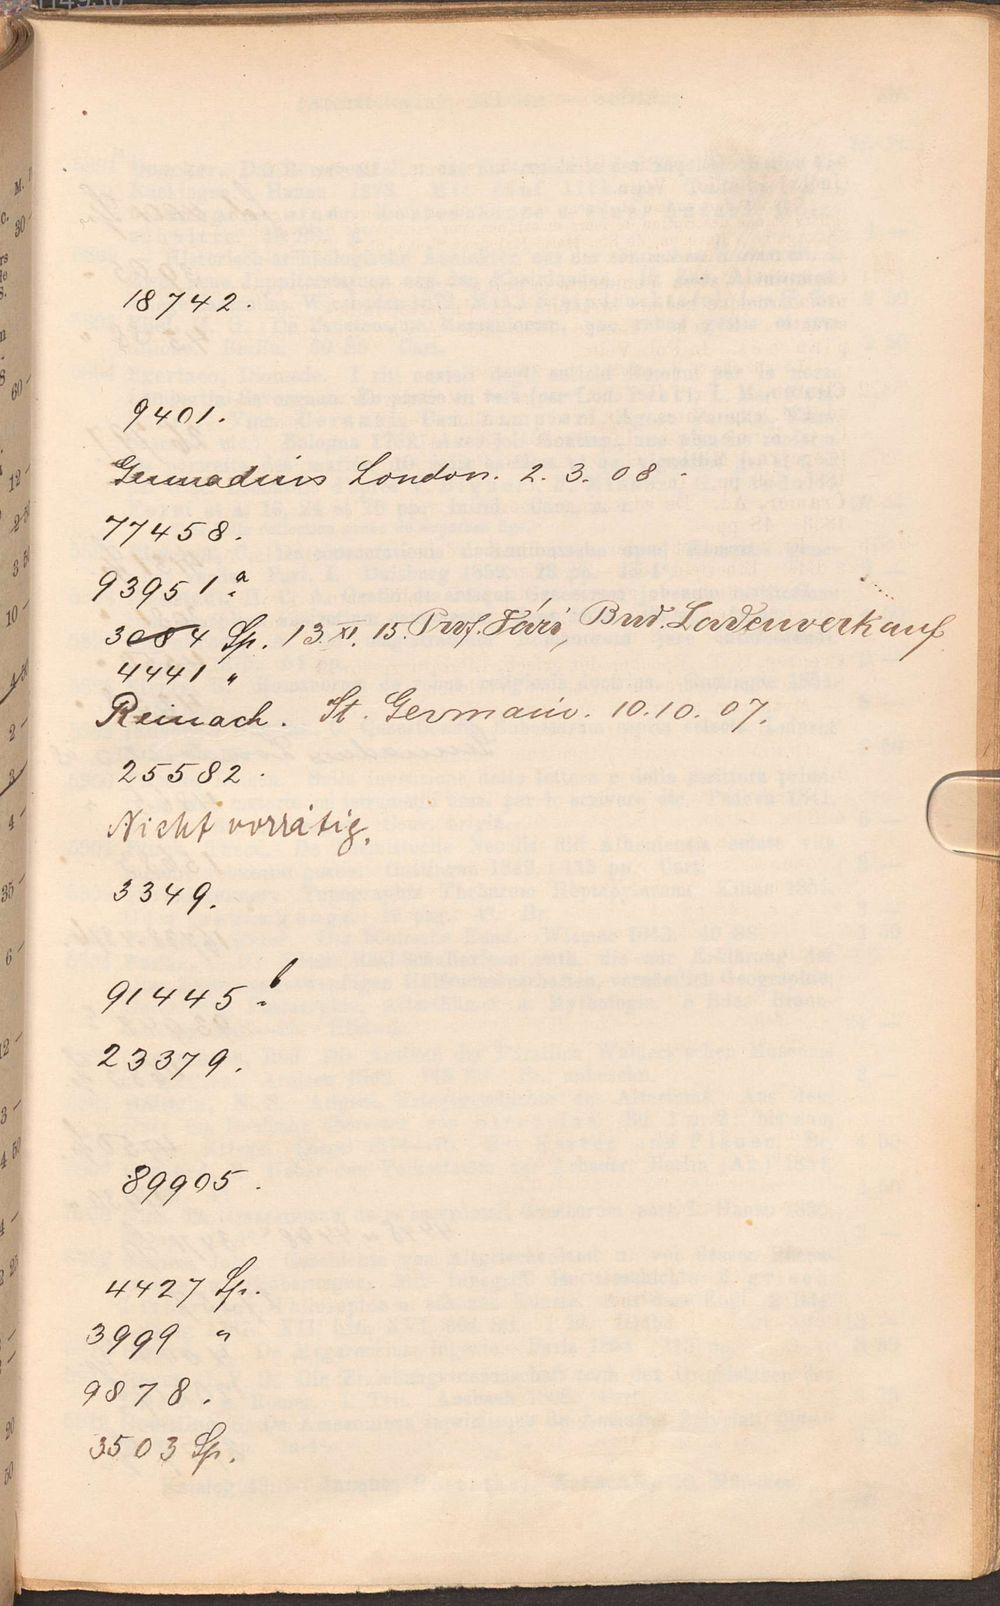 18742.
9401.
Gennadius London. 2. 3. 08.
77458.
93951 a.
3084 Sp. 13. XI. 15. Prof. Fári, Bud. Ladenverkauf
4441 "
Reinach. St. Germain. 10.10.07.
25582.
Nicht vorrätig.
3349.
91445 b.
23379.
89905.
4427 Sp.
3999 "
9878.
3503 Sp.